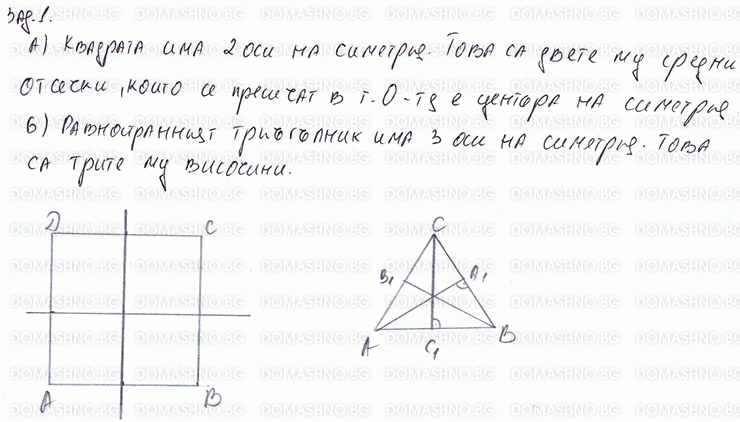 Зад. 1.
А) Квадрата има 2 оси на симетрия. Това са двете му средни
отсечки, които се пресичат в т. О - тя е центъра на симетрия.
Б) Равностранният триъгълник има 3 оси на симетрия. Това
са трите му височини.
D C C
B1 A1
A B A C1 B
DOMASHNO.BG